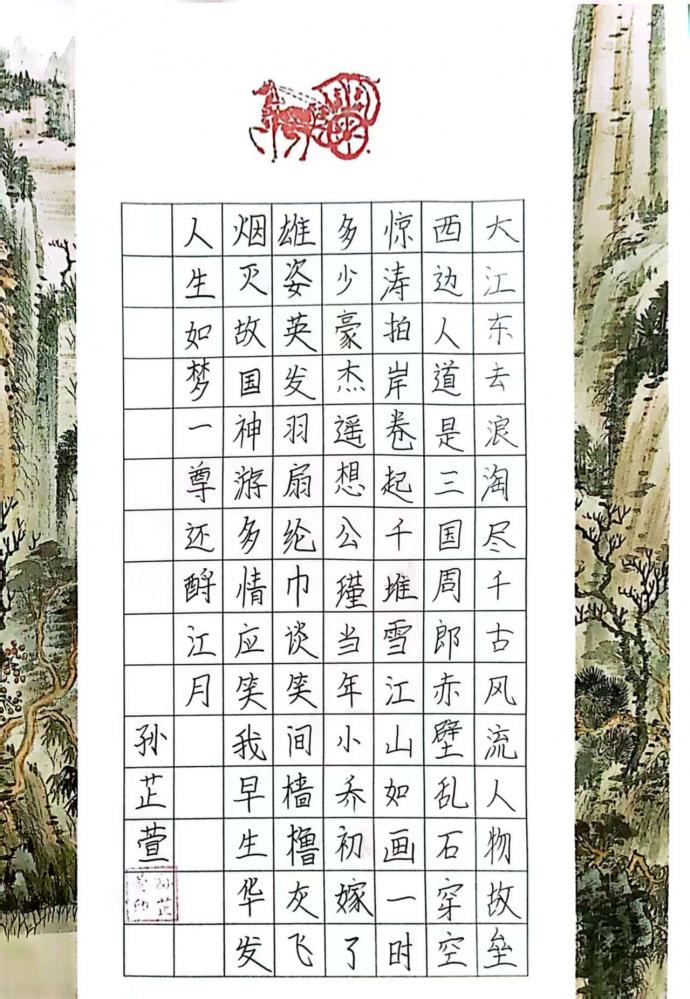 大江东去浪淘尽千古风流人物故垒
西边人道是三国周郎赤壁乱石穿空
惊涛拍岸卷起千堆雪江山如画一时
多少豪杰遥想公瑾当年小乔初嫁了
雄姿英发羽扇纶巾谈笑间樯橹灰飞
烟灭故国神游多情应笑我早生华发
人生如梦一尊还酹江月
孙芷萱
孙芷萱印